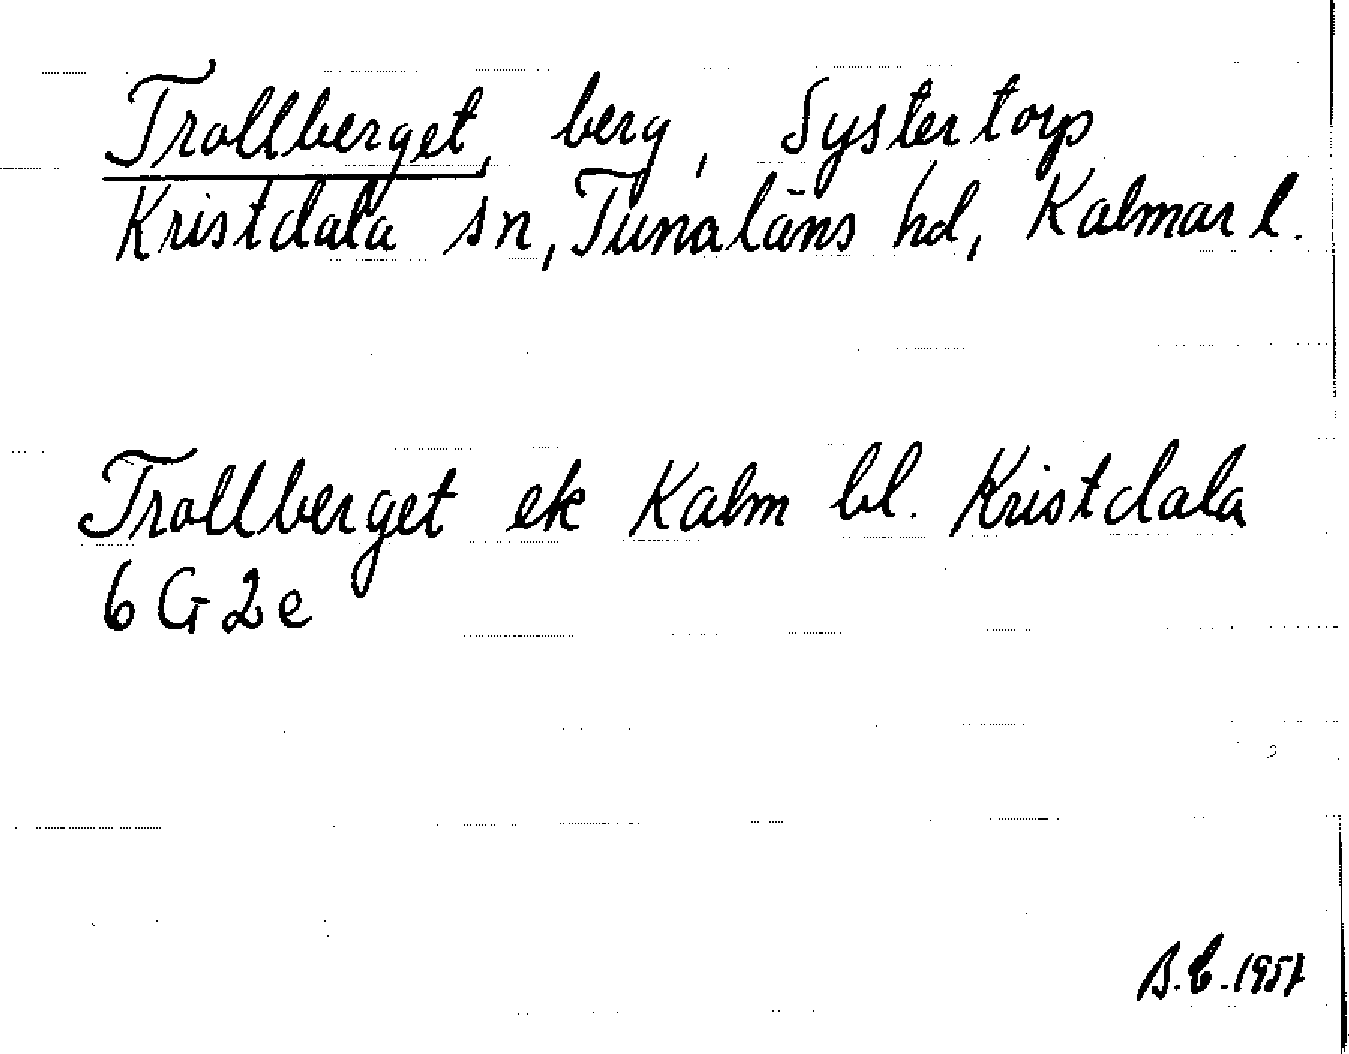 Trollberget, berg, Systertorp
Kristdala sn, Tunaläns hd, Kalmar l.
Trollberget ek Kalm bl. Kristdala
6 G 2 e
B.E. 1957